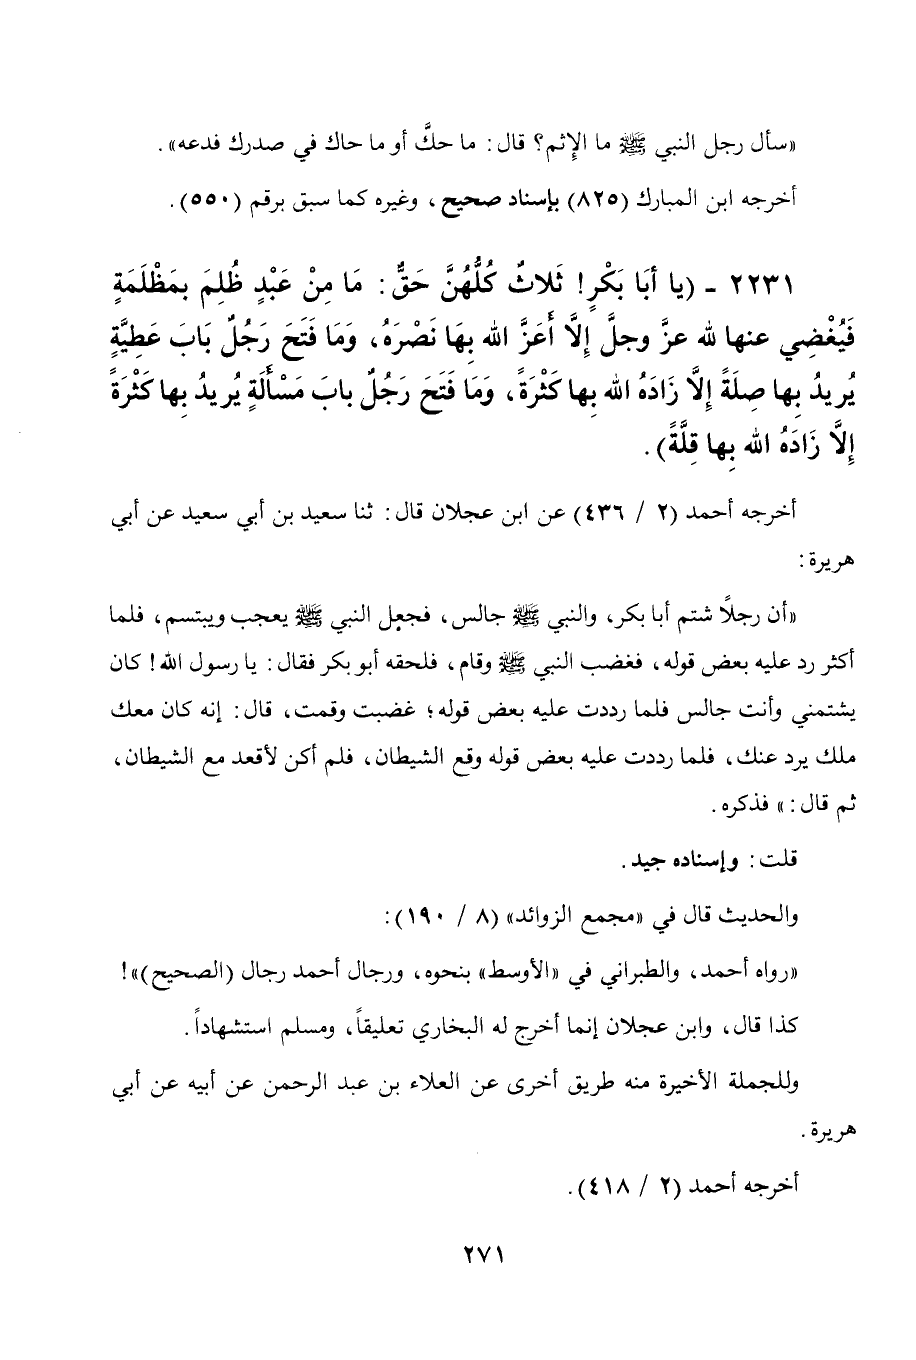 «سأل رجل النبي ﷺ ما الإثم؟ قال: ما حكَّ أو ما حاك في صدرك فدعه».
أخرجه ابن المبارك (٨٢٥) بإسناد صحيح، وغيره كما سبق برقم (٥٥٠).
٢٢٣١ - (يا أبَا بَكْرٍ! ثَلاثٌ كُلُّهُنَّ حَقٌّ: مَا مِنْ عَبْدٍ ظُلِمَ بِمَظْلَمَةٍ
فَيُغْضِي عنها لله عزَّ وجلَّ إلَّا أَعَزَّ الله بِهَا نَصْرَهُ، وَمَا فَتَحَ رَجُلٌ بَابَ عَطِيَّةٍ
يُريدُ بِها صِلَةً إلَّا زَادَهُ الله بِها كَثْرَةً، وَمَا فَتَحَ رَجُلٌ بابَ مَسْأَلَةٍ يُريدُ بِها كَثْرَةً
إلَّا زَادَهُ الله بِها قِلَّةً).
أخرجه أحمد (٢ / ٤٣٦) عن ابن عجلان قال: ثنا سعيد بن أبي سعيد عن أبي
هريرة:
«أن رجلاً شتم أبا بكر، والنبي ﷺ جالس، فجعل النبي ﷺ يعجب ويبتسم، فلما
أكثر رد عليه بعض قوله، فغضب النبي ﷺ وقام، فلحقه أبو بكر فقال: يا رسول الله! كان
يشتمني وأنت جالس فلما رددت عليه بعض قوله؛ غضبت وقمت، قال: إنه كان معك
ملك يرد عنك، فلما رددت عليه بعض قوله وقع الشيطان، فلم أكن لأقعد مع الشيطان،
ثم قال:» فذكره.
قلت: وإسناده جيد.
والحديث قال في «مجمع الزوائد» (٨ / ١٩٠):
«رواه أحمد، والطبراني في «الأوسط» بنحوه، ورجال أحمد رجال (الصحيح)»!
كذا قال، وابن عجلان إنما أخرج له البخاري تعليقاً، ومسلم استشهاداً.
وللجملة الأخيرة منه طريق أخرى عن العلاء بن عبد الرحمن عن أبيه عن أبي
هريرة.
أخرجه أحمد (٢ / ٤١٨).
٢٧١